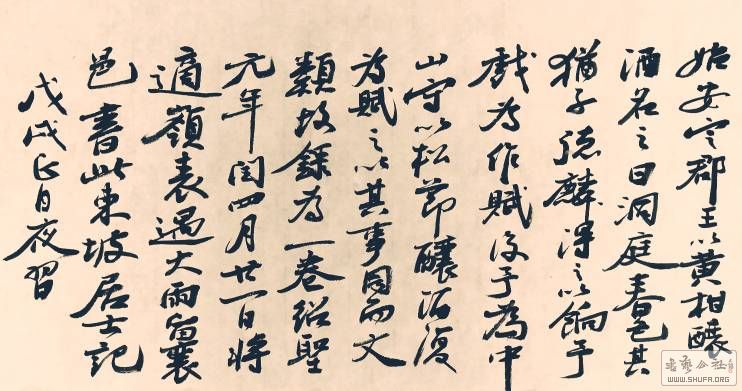 始安定郡王以黃柑釀
酒名之曰洞庭春色其
猶子德麟得之以餉予
戲為作賦後予為中
山守以松節釀酒復
為賦之以其事同而文
類故錄為一卷紹聖
元年閏四月廿一日將
適嶺表遇大雨留襄
邑書此東坡居士記
戊戌正月夜習
WWW.SHUFA.ORG